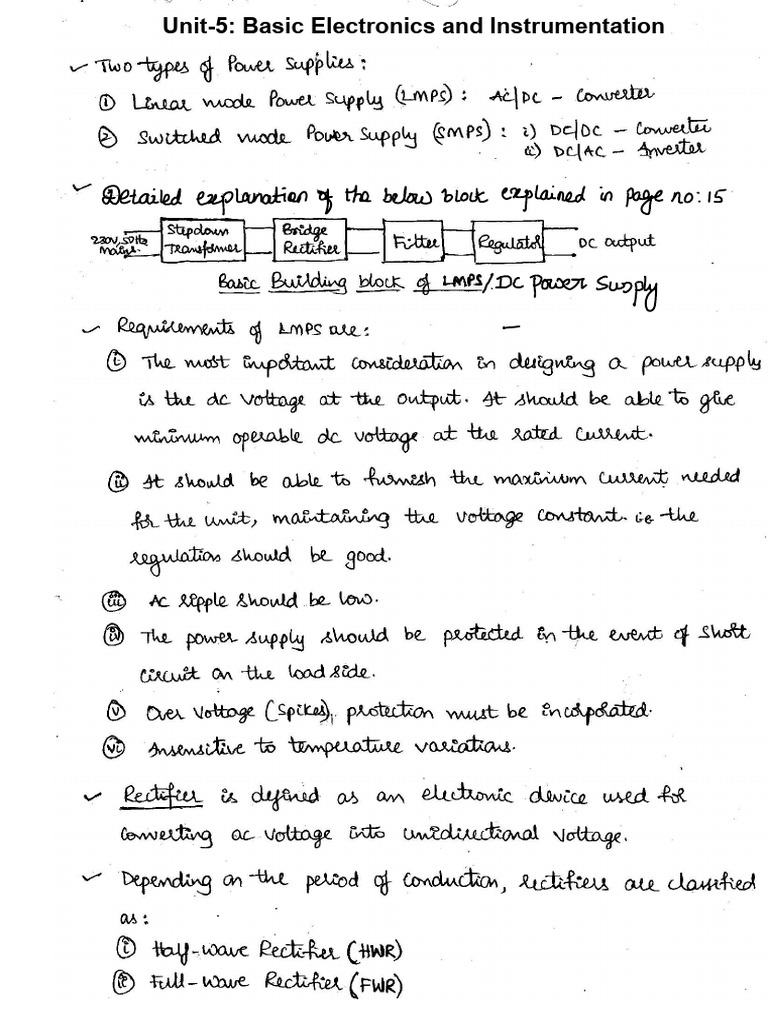 Unit-5: Basic Electronics and Instrumentation
✓ Two types of Power Supplies:
① Linear mode Power Supply (LMPS): AC/DC – Converter
② Switched mode Power Supply (SMPS): i) DC/DC – Converter
ii) DC/AC – Inverter
✓ Detailed explanation of the below block explained in page no: 15
230V, 50Hz Mains. Stepdown Transformer Bridge Rectifier Filter Regulator DC output
Basic Building block of LMPS/DC Power Supply
✓ Requirements of LMPS are: –
(i) The most important consideration in designing a power supply
is the dc voltage at the output. It should be able to give
mininum operable dc voltage at the rated current.
(ii) It should be able to furnish the maxinum current needed
for the unit, maintaining the voltage constant. i.e the
regulation should be good.
(iii) AC ripple should be low.
(iv) The power supply should be protected in the event of short
circuit on the load side.
(v) Over voltage (spikes), protection must be incorporated.
(vi) Insensitive to temperature variations.
✓ Rectifier is defined as an electronic device used for
converting ac voltage into unidirectional voltage.
✓ Depending on the period of conduction, rectifiers are classified
as:
(i) Half-wave Rectifier (HWR)
(ii) Full-wave Rectifier (FWR)